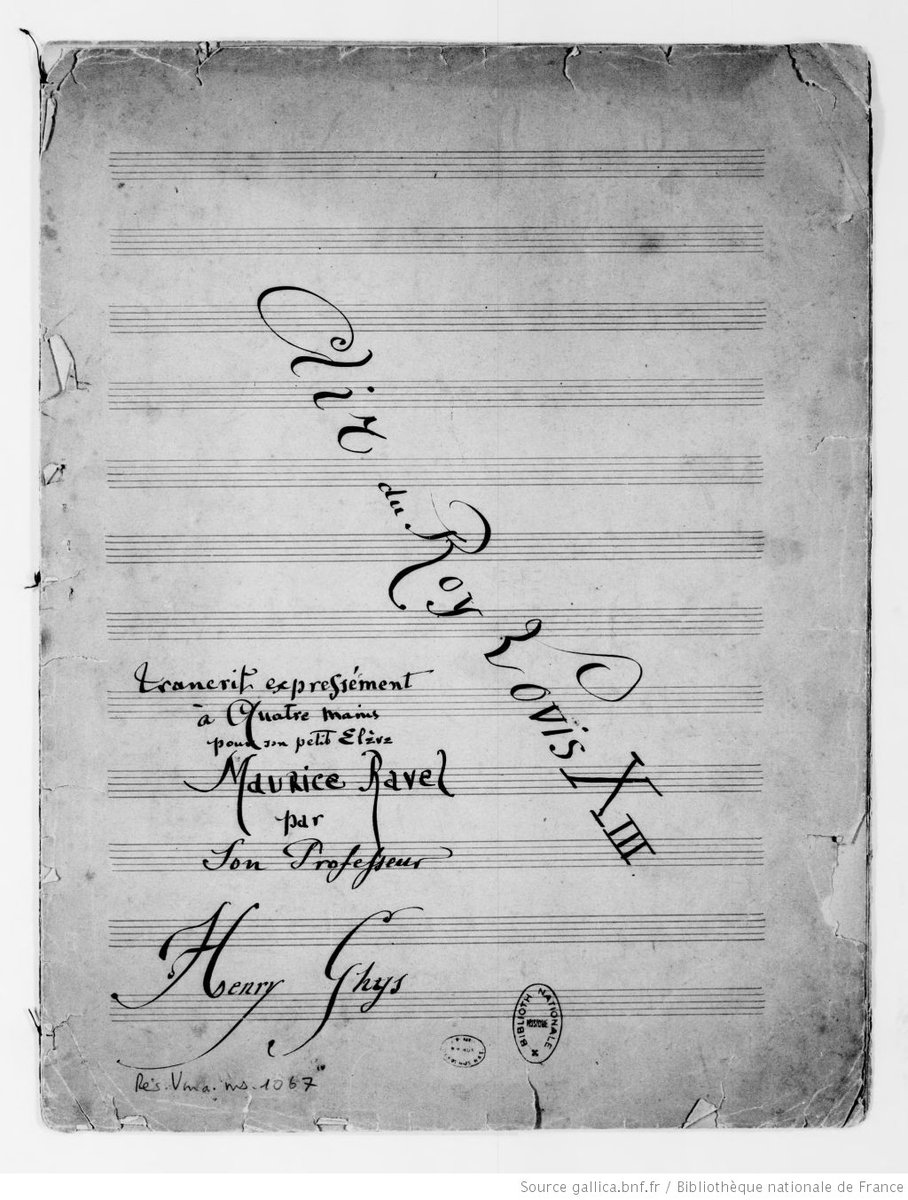 Air
du Roy Lovïs XIII
transcrit expressément
à Quatre mains
pour son petit Elève
Maurice Ravel
par
Son Professeur
Henry Ghys
BIBLIOTH NATIONALE
Rés. Vma. ms. 1067
Source gallica.bnf.fr / Bibliothèque nationale de France